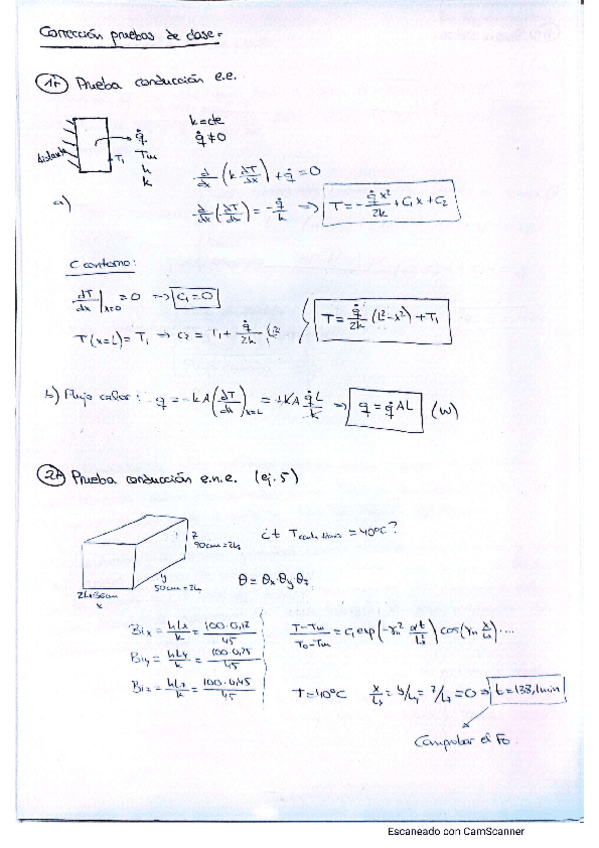 Corrección pruebas de clase.
1ª Prueba conducción e.e.
aislante
q̇
T∞
h
k
T₁
k=cte
q̇≠0
d/dx (k dT/dx) + q̇ = 0
a)
d/dx (dT/dx) = -q̇/k → T = -q̇x²/2k + C₁x + C₂
C contorno:
dT/dx |x=0 = 0 → C₁=0
T(x=L)=T₁ → C₂ = T₁ + q̇/2k L²
T = q̇/2k (L²-x²) + T₁
b) Flujo calor: q = -kA (dT/dx)x=L = +kA q̇L/k ⇒ q = q̇AL (W)
2ª Prueba conducción e.n.e. (ej. 5)
z
90cm=2L₃
y
50cm=2L₂
x
¿t = 40ºC?
θ = θx·θy·θz
Bix = hLx/k = 100·0,12/45
Biy = hLy/k = 100·0,25/45
Biz = hLz/k = 100·0,45/45
T-T∞/T₀-T∞ = C₁exp(-γn² αt/L²) cos(γn x/L)....
T=40ºC x/Lx = y/Ly = z/Lz = 0 ⇒ t=138,1min
Comprobar el Fo
Escaneado con CamScanner